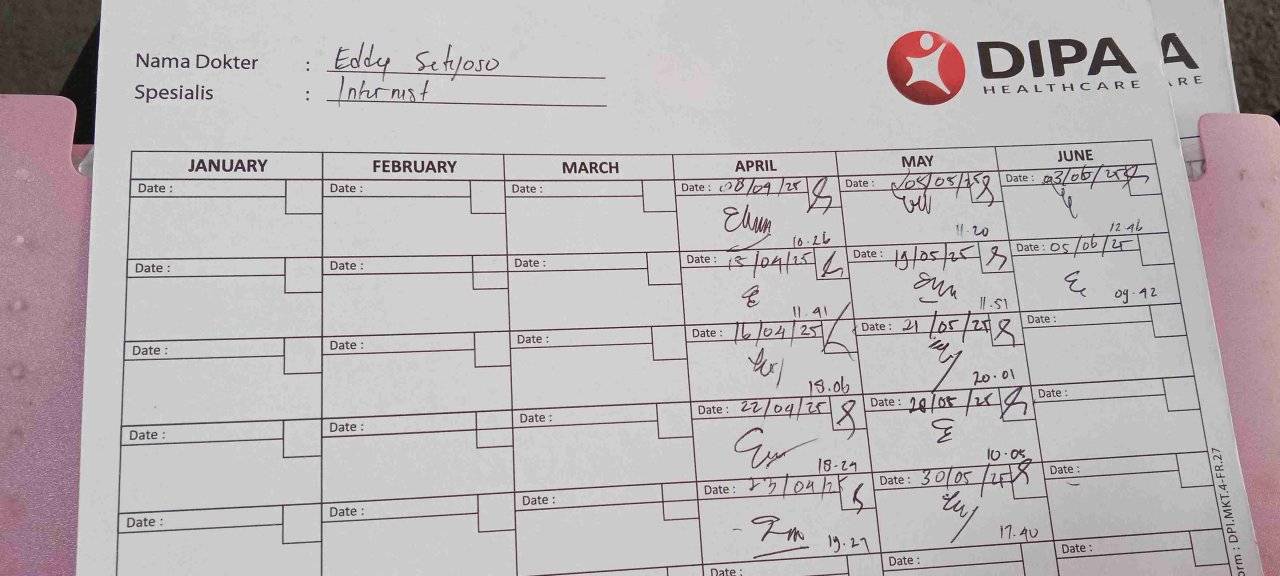 Nama Dokter : Eddy Setyoso
Spesialis : Internist
DIPA A
HEALTHCARE ARE
JANUARY FEBRUARY MARCH APRIL MAY JUNE
Date : Date : Date : Date : 08/04/25 Date : 05/05/25 Date : 03/06/25
10.26 11.20 12.46
Date : Date : Date : Date : 15/04/25 Date : 19/05/25 Date : 05/06/25
11.41 11.51 09.42
Date : Date : Date : Date : 16/04/25 Date : 21/05/25 Date :
18.06 20.01
Date : Date : Date : Date : 22/04/25 Date : /05/25 Date :
18.29 10.05
Date : Date : Date : Date : 23/04/25 Date : 30/05/25 Date :
19.27 17.40
Date : Date : Date :
orm : DPI.MKT.4-FR.27